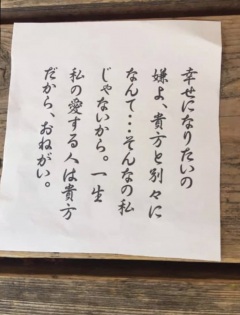 幸せになりたいの
嫌よ、貴方と別々に
なんて・・・そんなの私
じゃないから。一生
私の愛する人は貴方
だから、おねがい。